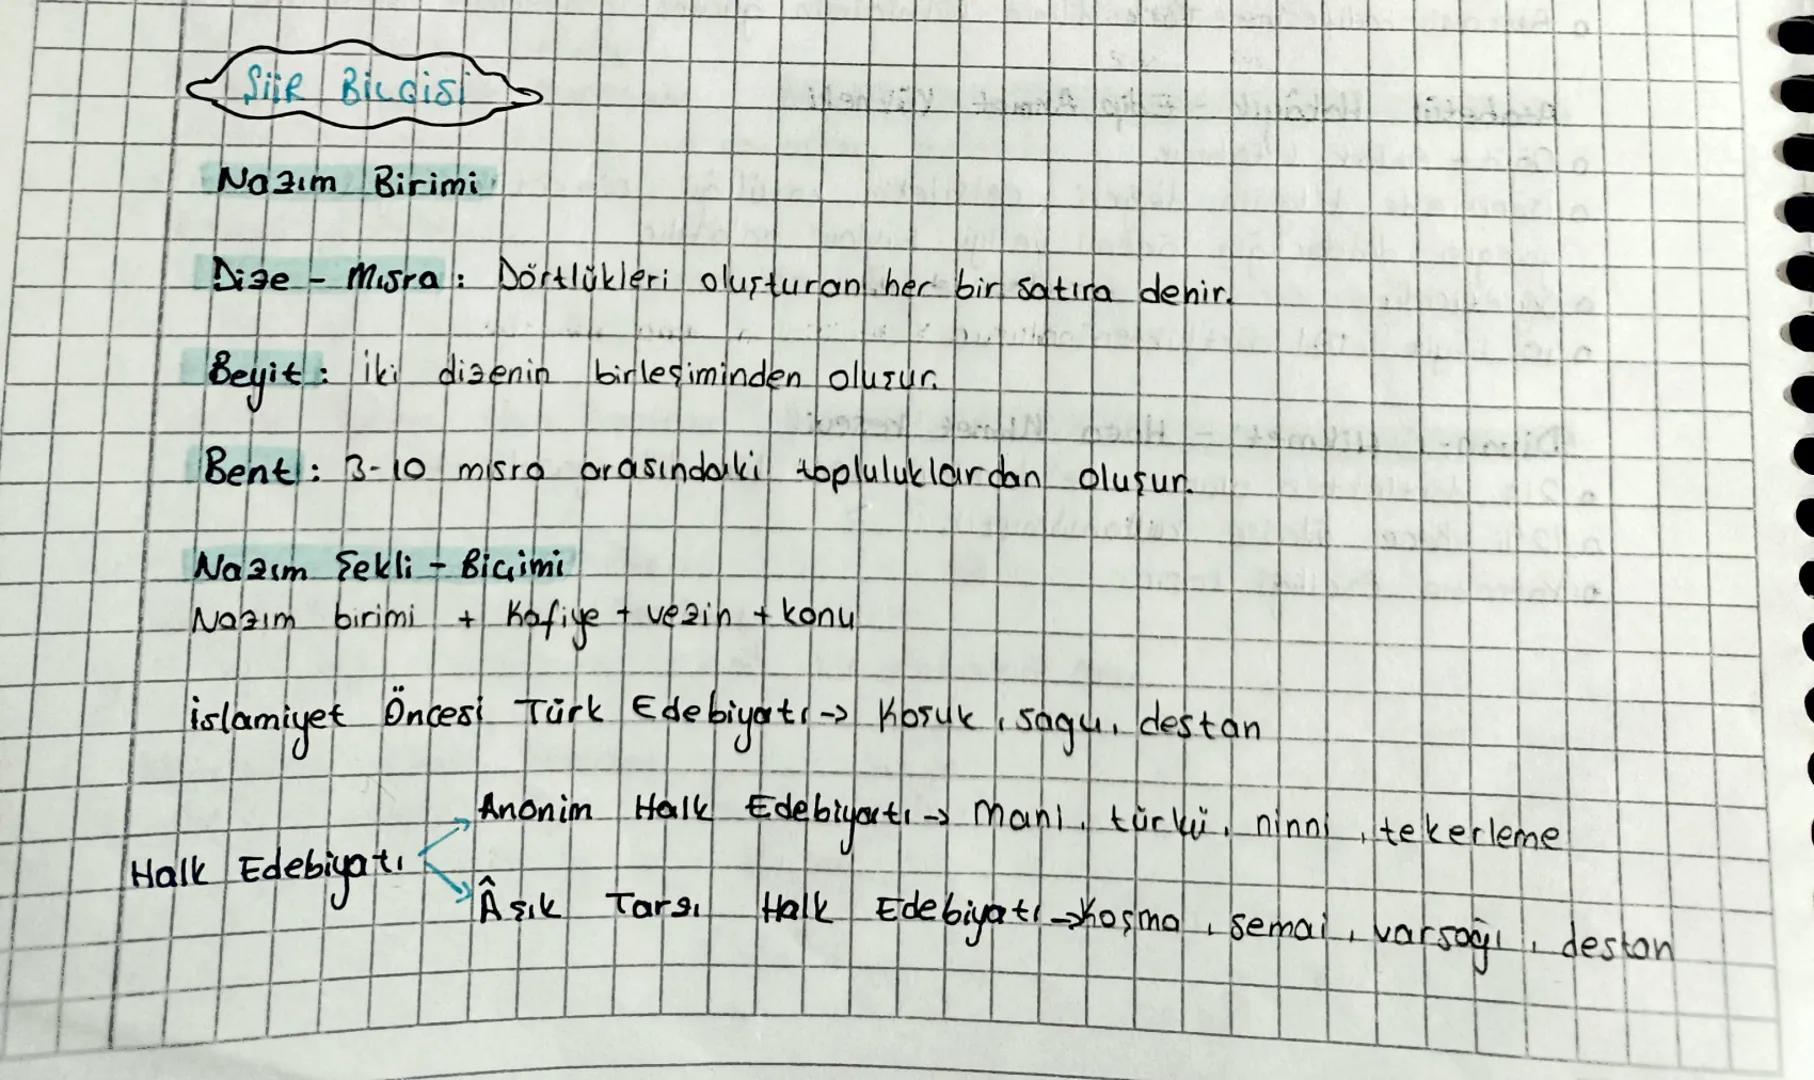 ŞiiR BiLGiSi
Nazım Birimi
Dize - Mısra : Dörtlükleri oluşturan her bir satıra denir.
Beyit : İki dizenin birleşiminden oluşur.
Bent : 3-10 mısra arasındaki topluluklardan oluşur.
Nazım Şekli - Biçimi
Nazım birimi + Kafiye + vezin + konu
İslamiyet Öncesi Türk Edebiyatı -> Koşuk, sagu, destan
Anonim Halk Edebiyatı -> Mani, türkü, ninni, tekerleme
Halk Edebiyatı
Âşık Tarzı Halk Edebiyatı -> Koşma, semai, varsağı, destan